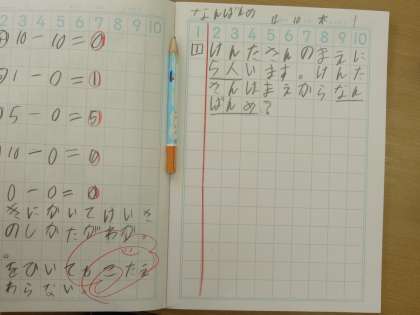 2 3 4 5 6 7 8 9 10
10 - 10 = 0
1 - 0 = 1
5 - 0 = 5
10 - 0 = 0
0 - 0 = 0
さにかいてけいさ
のしかたがわか
0をひいてもこたえ
わらない。
なんばんめ
1 2 3 4 5 6 7 8 9 10
1 けんたさんのまえに
5人います。けんた
さんはまえからなん
ばんめ?